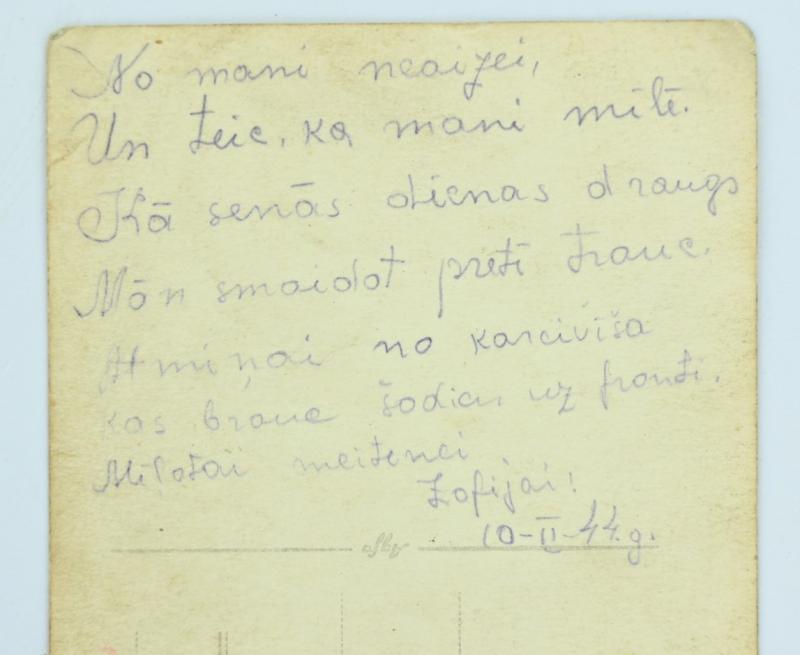 No mani neaizei,
Un teic, ka mani mīlē.
Kā senās dienas draugs
Mān smaidot pretī trauc.
Atmiņai no karcivīša
kas brauc šodien uz fronti.
Mīļotai meitenei
Zofijai!
10-II-44.g.
Agfa